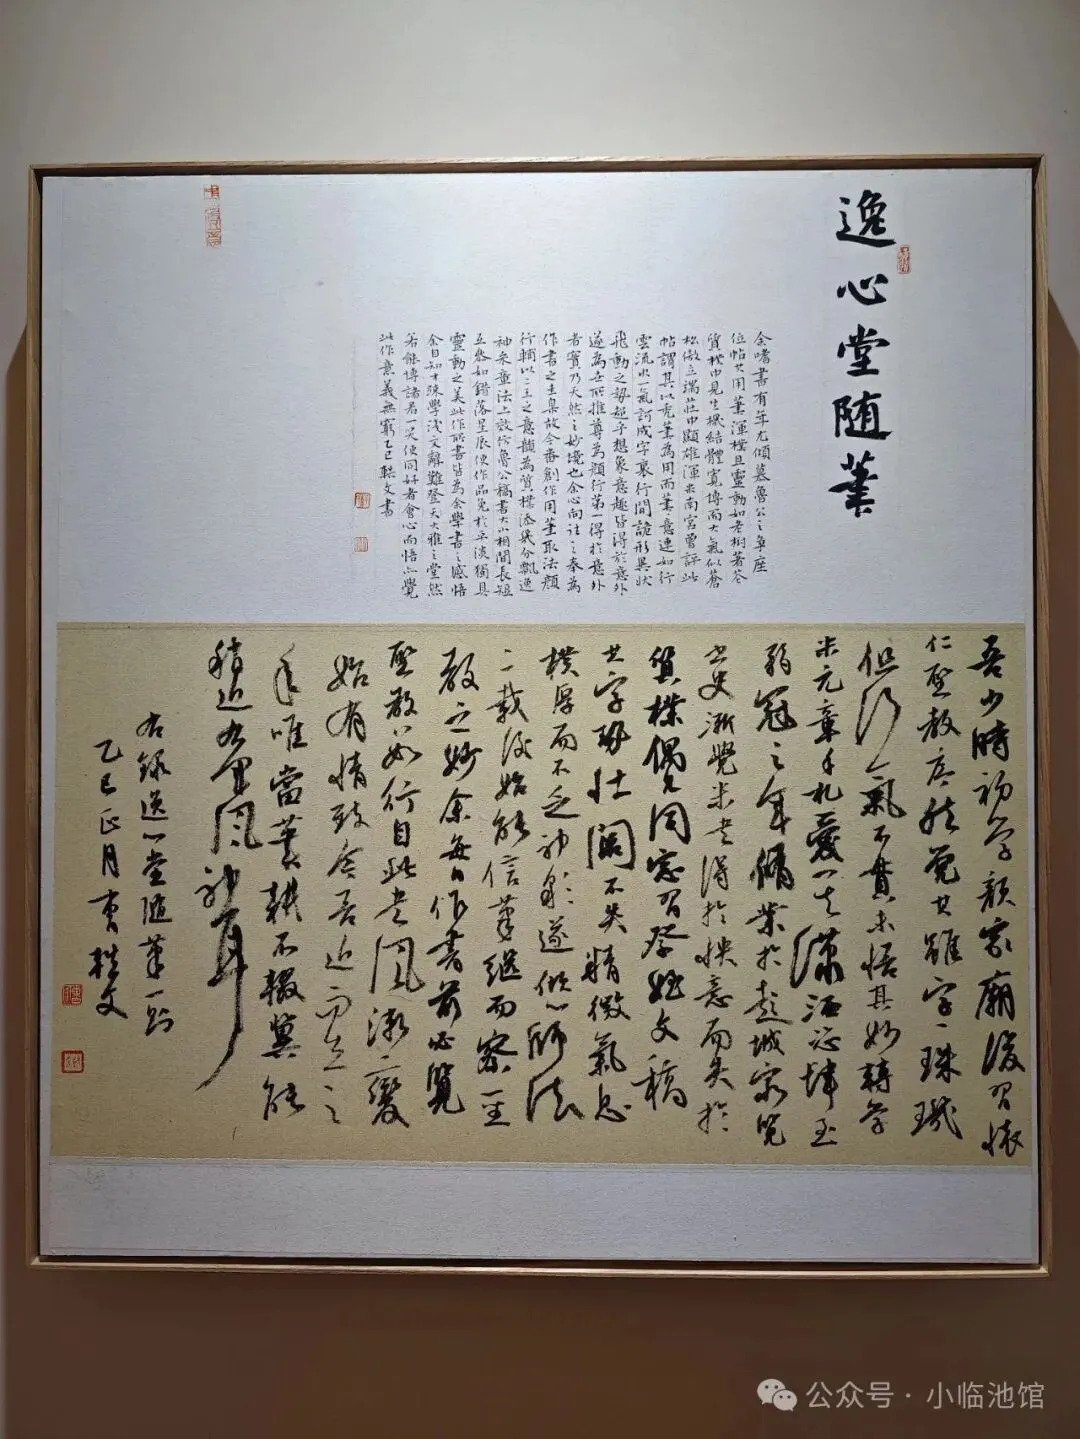 逸心堂随笔
余嗜書有年尤傾慕魯公之争座
位帖其用筆渾樸且靈動如老樹著花
質樸中見生機結體寬博而大氣似蒼
松傲立端莊中顯雄渾米南宮曾評此
帖謂其以禿筆為用而筆意連如行
雲流水一氣訶成字裏行間詭形異狀
飛動之勢超乎想象意趣皆得於意外
遂為世所推尊為顏行第一得於意外
者實乃天然之妙境也余心向往之奉為
作書之圭臬故今番創作用筆取法顏
行輔以二王之意韻為質樸添幾分飄逸
神采章法上效仿魯公稿書大小相間長短
互參如錯落星辰使作品免於平淡獨具
靈動之美此作所書皆為余學書之感悟
余自知才疎學淺文辭難登大雅之堂然
若能博諸君一笑使同好者會心而悟亦覺
此作意義無窮乙巳 文書
吾少時初學顏家廟後習懷
仁聖教序然覺其雖字字珠璣
但行氣不貫未悟其妙轉學
米元章手札愛其瀟灑恣肆至
弱冠之年脩業於 城家覽
書史漸覺米書得於快意而失於
質樸偶見同窓習祭姪文稿
其字勢壯闊不失精微氣息
樸厚而不乏神彩遂傾心師法
二載後始能信筆繼而察至
教之妙余每每作書前必覽
聖教數行自此書風漸變
始有情致今吾近而立之
年唯當筆耕不輟冀能
稍近右軍風神耳
右錄逸心堂隨筆一則
乙巳正月 文
公众号·小临池馆